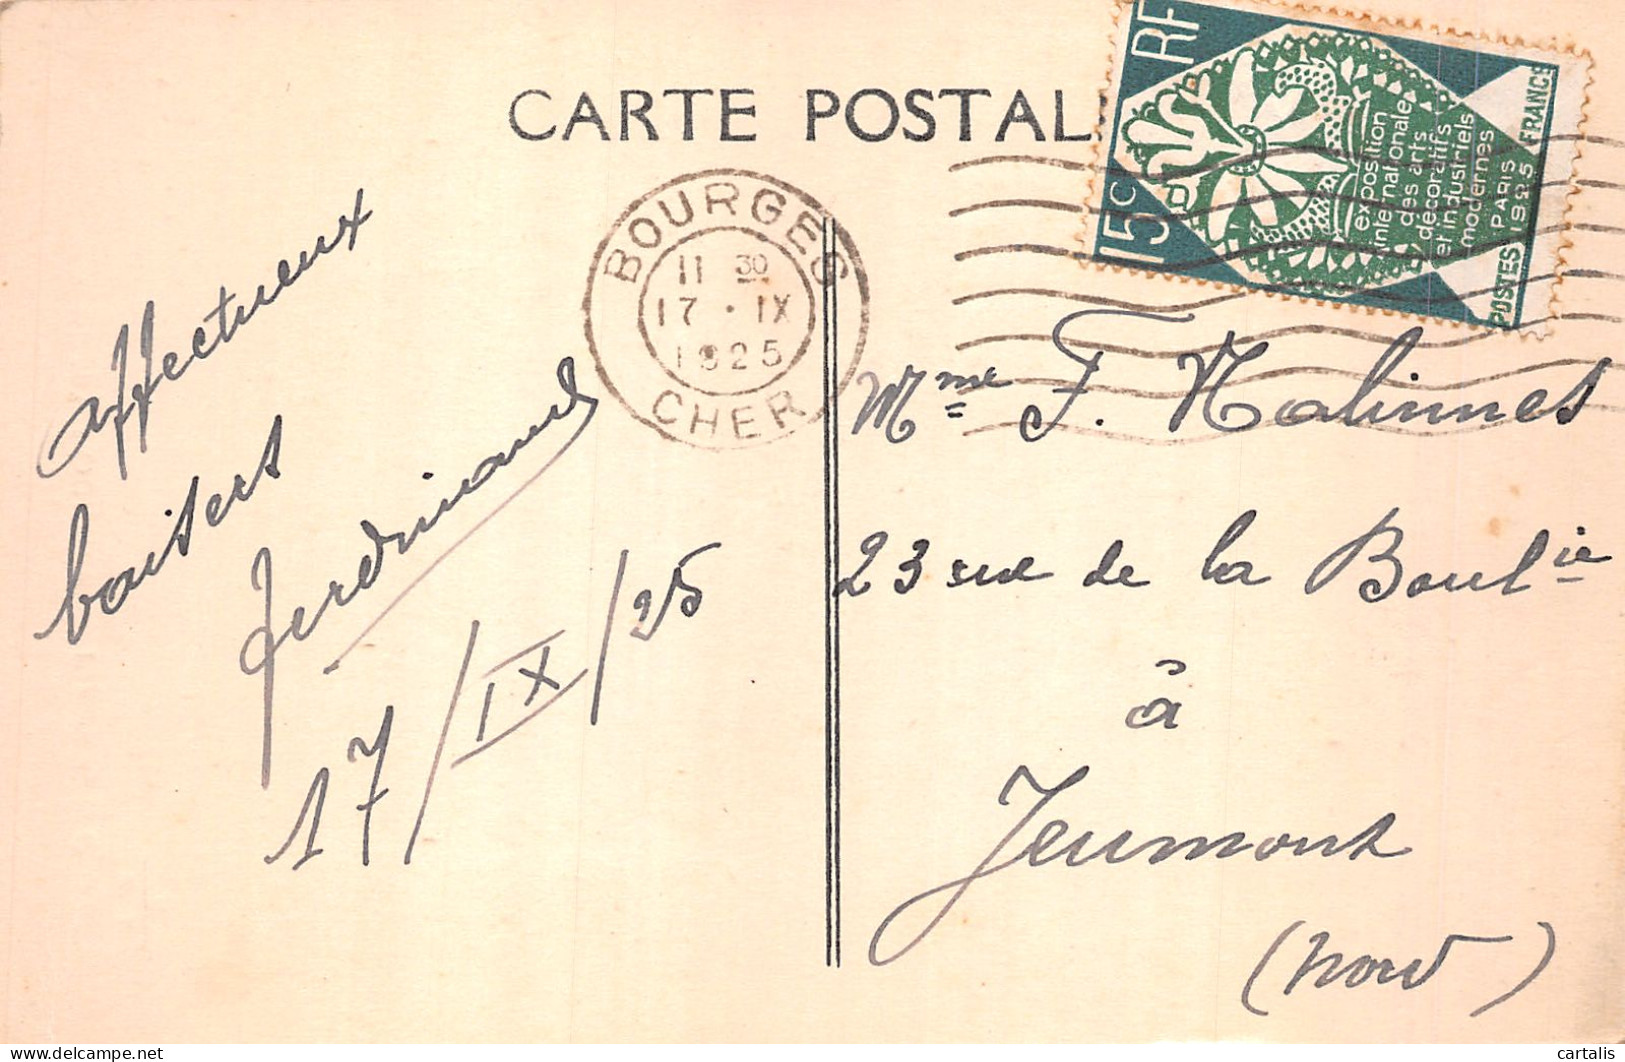 CARTE POSTAL
RF
15c
exposition
internationale
des arts
décoratifs
et industriels
modernes
PARIS
1925
POSTES FRANCE
BOURGES
11 30
17 · IX
1925
CHER
affectueux
baisers
Ferdinand
17/IX/25
Mme F. Malinnes
23 rue de la Boulie
à
Jeumont
(Nord)
cartalis